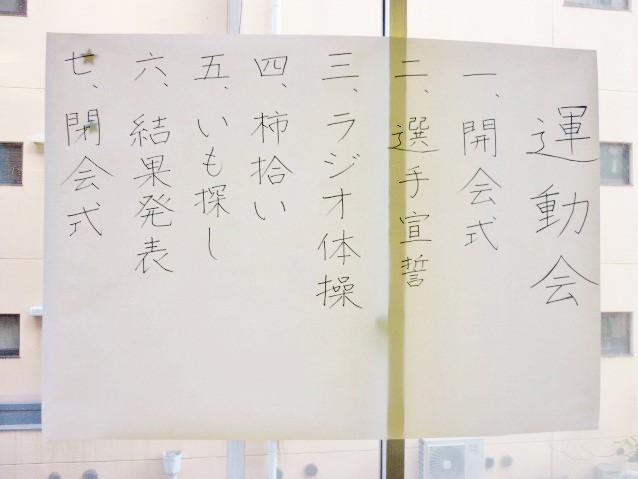 運動会
一、開会式
二、選手宣誓
三、ラジオ体操
四、柿拾い
五、いも探し
六、結果発表
七、閉会式